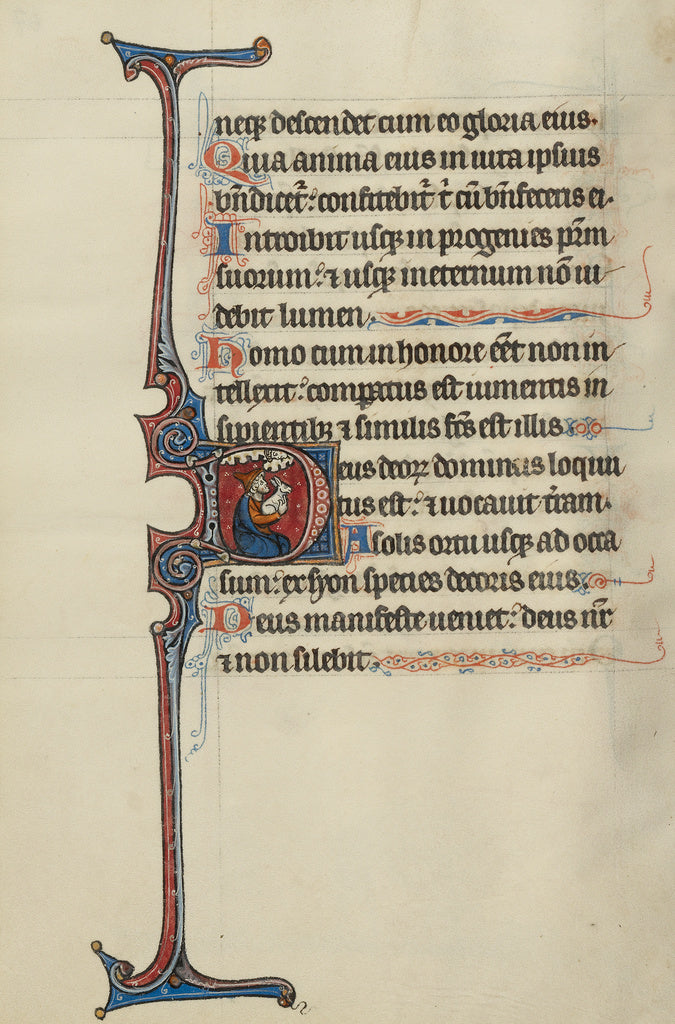 neq; descendet cum eo gloria eius.
Quia anima eius in uita ipsius
bn̄dicet᷑: confitebit᷑ t̄ cū bn̄feceris ei.
Introibit usq; in progenies pr̄m
suorum: ⁊ usq; in eternum nō ui
debit lumen.
Homo cum in honore eēt non in
tellexit: compatus est iumentis in
sipientib; ⁊ similis fcs̄ est illis.
Deus deoꝝ dominus locutu
tus est: ⁊ uocauit tr̄am.
A solis ortu usq; ad occa
sum: ex syon species decoris eius.
Deus manifeste ueniet: deus nr̄
⁊ non silebit.